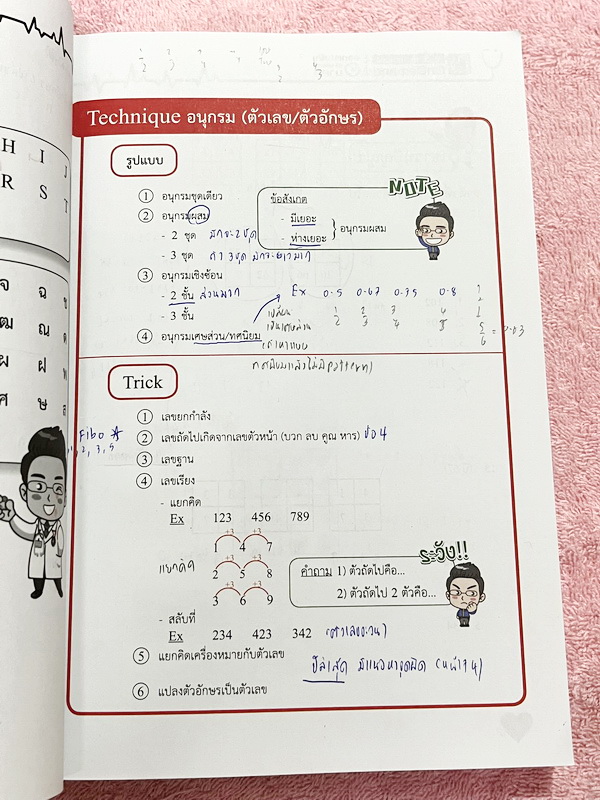 H I J
R S T
จ ฉ ช
ฒ ณ ด
ผ ฝ พ
ศ ษ ส
Technique อนุกรม (ตัวเลข/ตัวอักษร)
รูปแบบ
① อนุกรมชุดเดียว
② อนุกรมผสม
- 2 ชุด มักจะ 2 ชุด
- 3 ชุด ถ้า 3 ชุด มักจะยาวมาก
③ อนุกรมเชิงซ้อน
- 2 ชั้น ส่วนมาก
- 3 ชั้น
④ อนุกรมเศษส่วน/ทศนิยม
NOTE
ข้อสังเกต
- มีเยอะ
- ห่างเยอะ
อนุกรมผสม
Ex 0.5 0.67 0.75 0.8 ?
1/2 2/3 3/4 4/5
5/6 = 0.83
Trick
① เลขยกกำลัง
Fibo
② เลขถัดไปเกิดจากเลขตัวหน้า (บวก ลบ คูณ หาร) ข้อ 4
1, 2, 3, 5
③ เลขฐาน
④ เลขเรียง
- แยกคิด
Ex 123 456 789
+3 +3
1 4 7
+3 +3
แยกคิด
2 5 8
+3 +3
3 6 9
ระวัง!!
คำถาม 1) ตัวถัดไปคือ...
2) ตัวถัดไป 2 ตัวคือ...
- สลับที่
Ex 234 423 342
⑤ แยกคิดเครื่องหมายกับตัวเลข
⑥ แปลงตัวอักษรเป็นตัวเลข